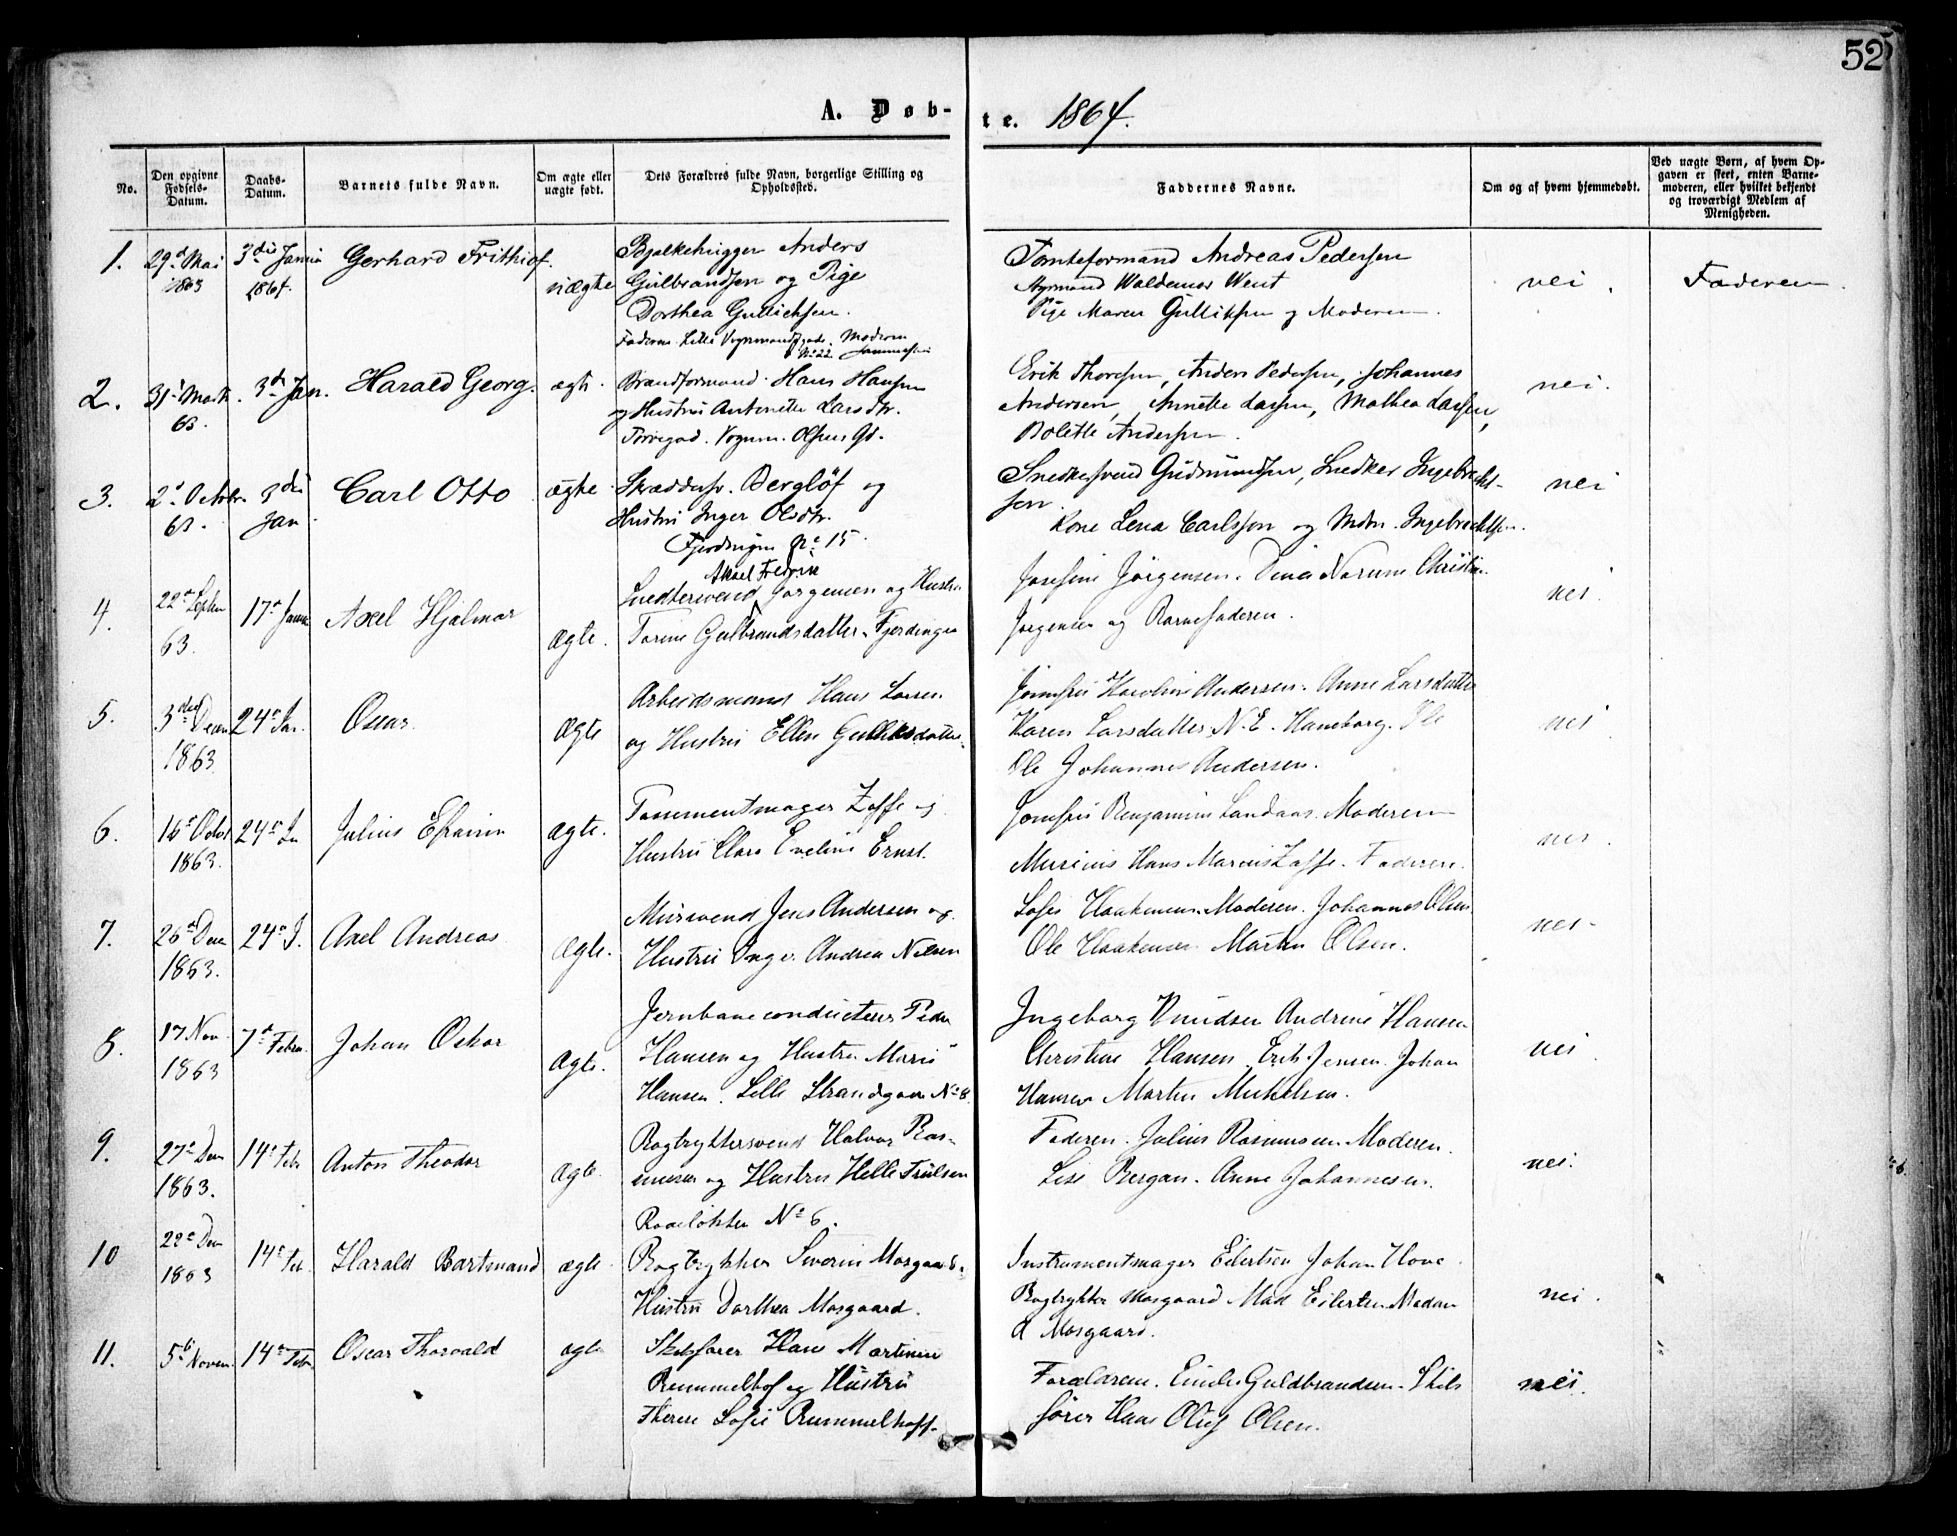 52
A. Døb-
te. 1864.
No.
Den opgivne Fødsels-Datum.
Daabs-Datum.
Barnets fulde Navn.
Om ægte eller uægte født.
Dets Forældres fulde Navn, borgerlige Stilling og Opholdssted.
Faddernes Navne.
Om og af hvem hjemmedøbt.
Ved uægte Børn, af hvem Opgaven er skeet, enten Barnemoderen, eller hvilket bekjendt og troværdigt Medlem af Menigheden.
1. 29d Mai 3die
1863 1864. Gerhard Frithiof. uægte
Anders
Gulbrandsen og Pige
Dorthea
Faderen Lille Moderen
No 22.
Andreas Pedersen
Waldemar Went
Pige Maren og Moderen
nei. Faderen.
2. 31 3d Jan. Harald Georg. ægte.
63.
Brandformand Hans Hansen
og Hustru Antonette Larsdtr.
Erik Thoresen, Anders Pedersen, Johannes
Andersen, Annette Larsen, Mathea Larsen,
Bolette Andersen.
nei.
3. 2d 3die Carl Otto ægte
63. Jan.
Bergløf og
Hustru Inger Olsdtr.
Fjerdingen No 15.
Gudmundsen, Snedker Ingebrecht-
sen.
Kone Lena Carlsson og
nei
4. 22d 17d Axel Hjalmar ægte.
63.
Axel Fredrik
Snedkersvend Jørgensen og Hustru
Torine Gulbrandsdatter. Fjerdingen
Josefine Jørgensen. Dina
Jørgensen og Barnefaderen.
nei.
5. 3die Decem 24d Jan. Oscar. ægte
1863
Arbeidsmand Hans Larsen
og Hustru Ellen Gulliksdatter.
Jomfru Karoline Andersen. Anne Larsdatter
Karen Larsdatter. N. E. Haneborg. Ole
Ole Johannes Andersen.
nei
6. 16d Octob 24d Jan Julius Efraim ægte.
1863.
Zaffe og
Hustru Clara Eveline Ernst.
Jomfru Landaas. Moderen
Hans Marcus Zaffe. Faderen.
nei.
7. 26d Decem 24d J. Axel Andreas ægte.
1863.
Mursvend Jens Andersen og
Hustru Inger Andrea Nilsen
Johannes Olsen
Ole Haakensen Martin Olsen.
nei.
8. 17 Nov. 7d Febru. Johan Oskar ægte.
1863
Jernbaneconducteur Peder
Hansen og Hustru Marie
Hansen. Lille Strandgade No 8.
Ingeborg Knudsen Andrine Hansen
Christine Hansen. Erik Jensen. Johan
Hansen Martin Mikelsen.
nei
9. 27d Decm 14d Febr Anton Theodor ægte.
1863.
Bogtrykkersvend Halvor Ras-
mussen og Hustru Helle Truelsen
No 6.
Faderen. Julius Rasmussen. Moderen.
Lise Bergan. Anne Johannesen.
nei.
10 22d Decm 14d Feb. Harald Bartmand ægte
1863
Bogtrykker Severin Mosgaard.
Hustru Dorthea Mosgaard.
Instrumentmager Eilertsen Johan
Bogtrykker Mosgaard Mad Eilertsen. Madam
A Mosgaard.
nei.
11. 5te Novem. 14d Febr. Oscar Thorvald ægte
Skibsfører Hans Martinius
Rummelhof og Hustru
Therese Sofie Rummelhoff.
Forældrene. Emilie Guldbrandsen. Skibs
fører Hans Oluf Olsen.
nei.